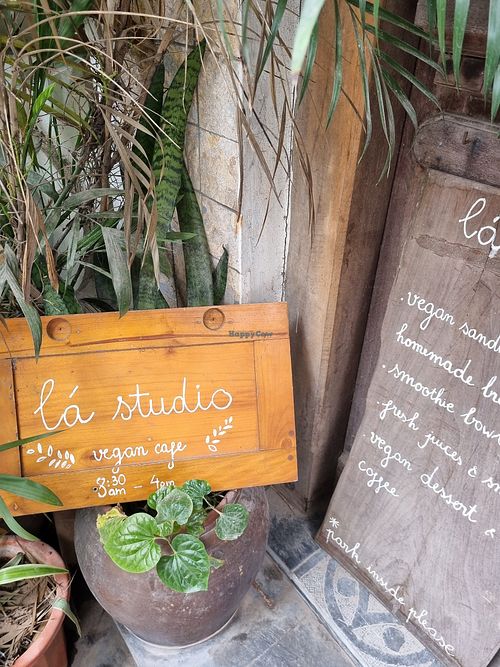 lá studio
vegan cafe
8:30 am - 4pm
HappyCow
lá
. vegan sand
homemade br
. smoothie bow
. fresh juices & sm
. vegan dessort &
coffee
* park inside please